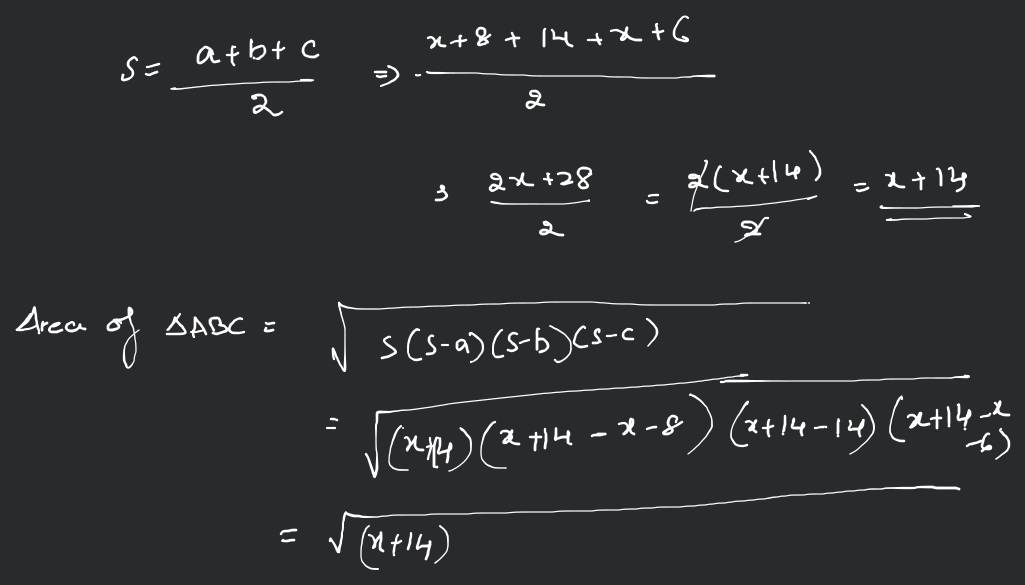 S = (a+b+c)/2 ⇒ (x+8+14+x+6)/2
⇒ (2x+28)/2 = 2(x+14)/2 = x+14
Area of ΔABC = √(s(s-a)(s-b)(s-c))
= √((x+14)(x+14-x-8)(x+14-14)(x+14-x-6))
= √(x+14)